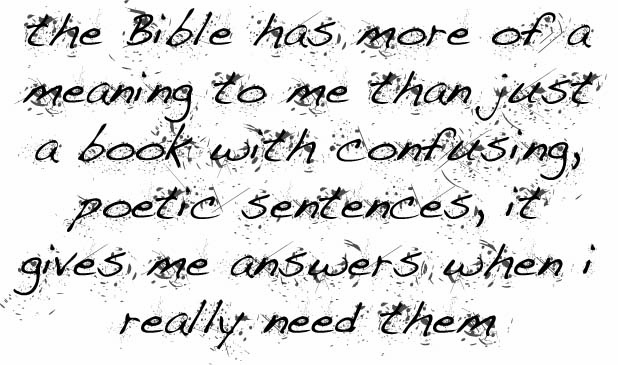 the Bible has more of a
meaning to me than just
a book with confusing,
poetic sentences, it
gives me answers when i
really need them